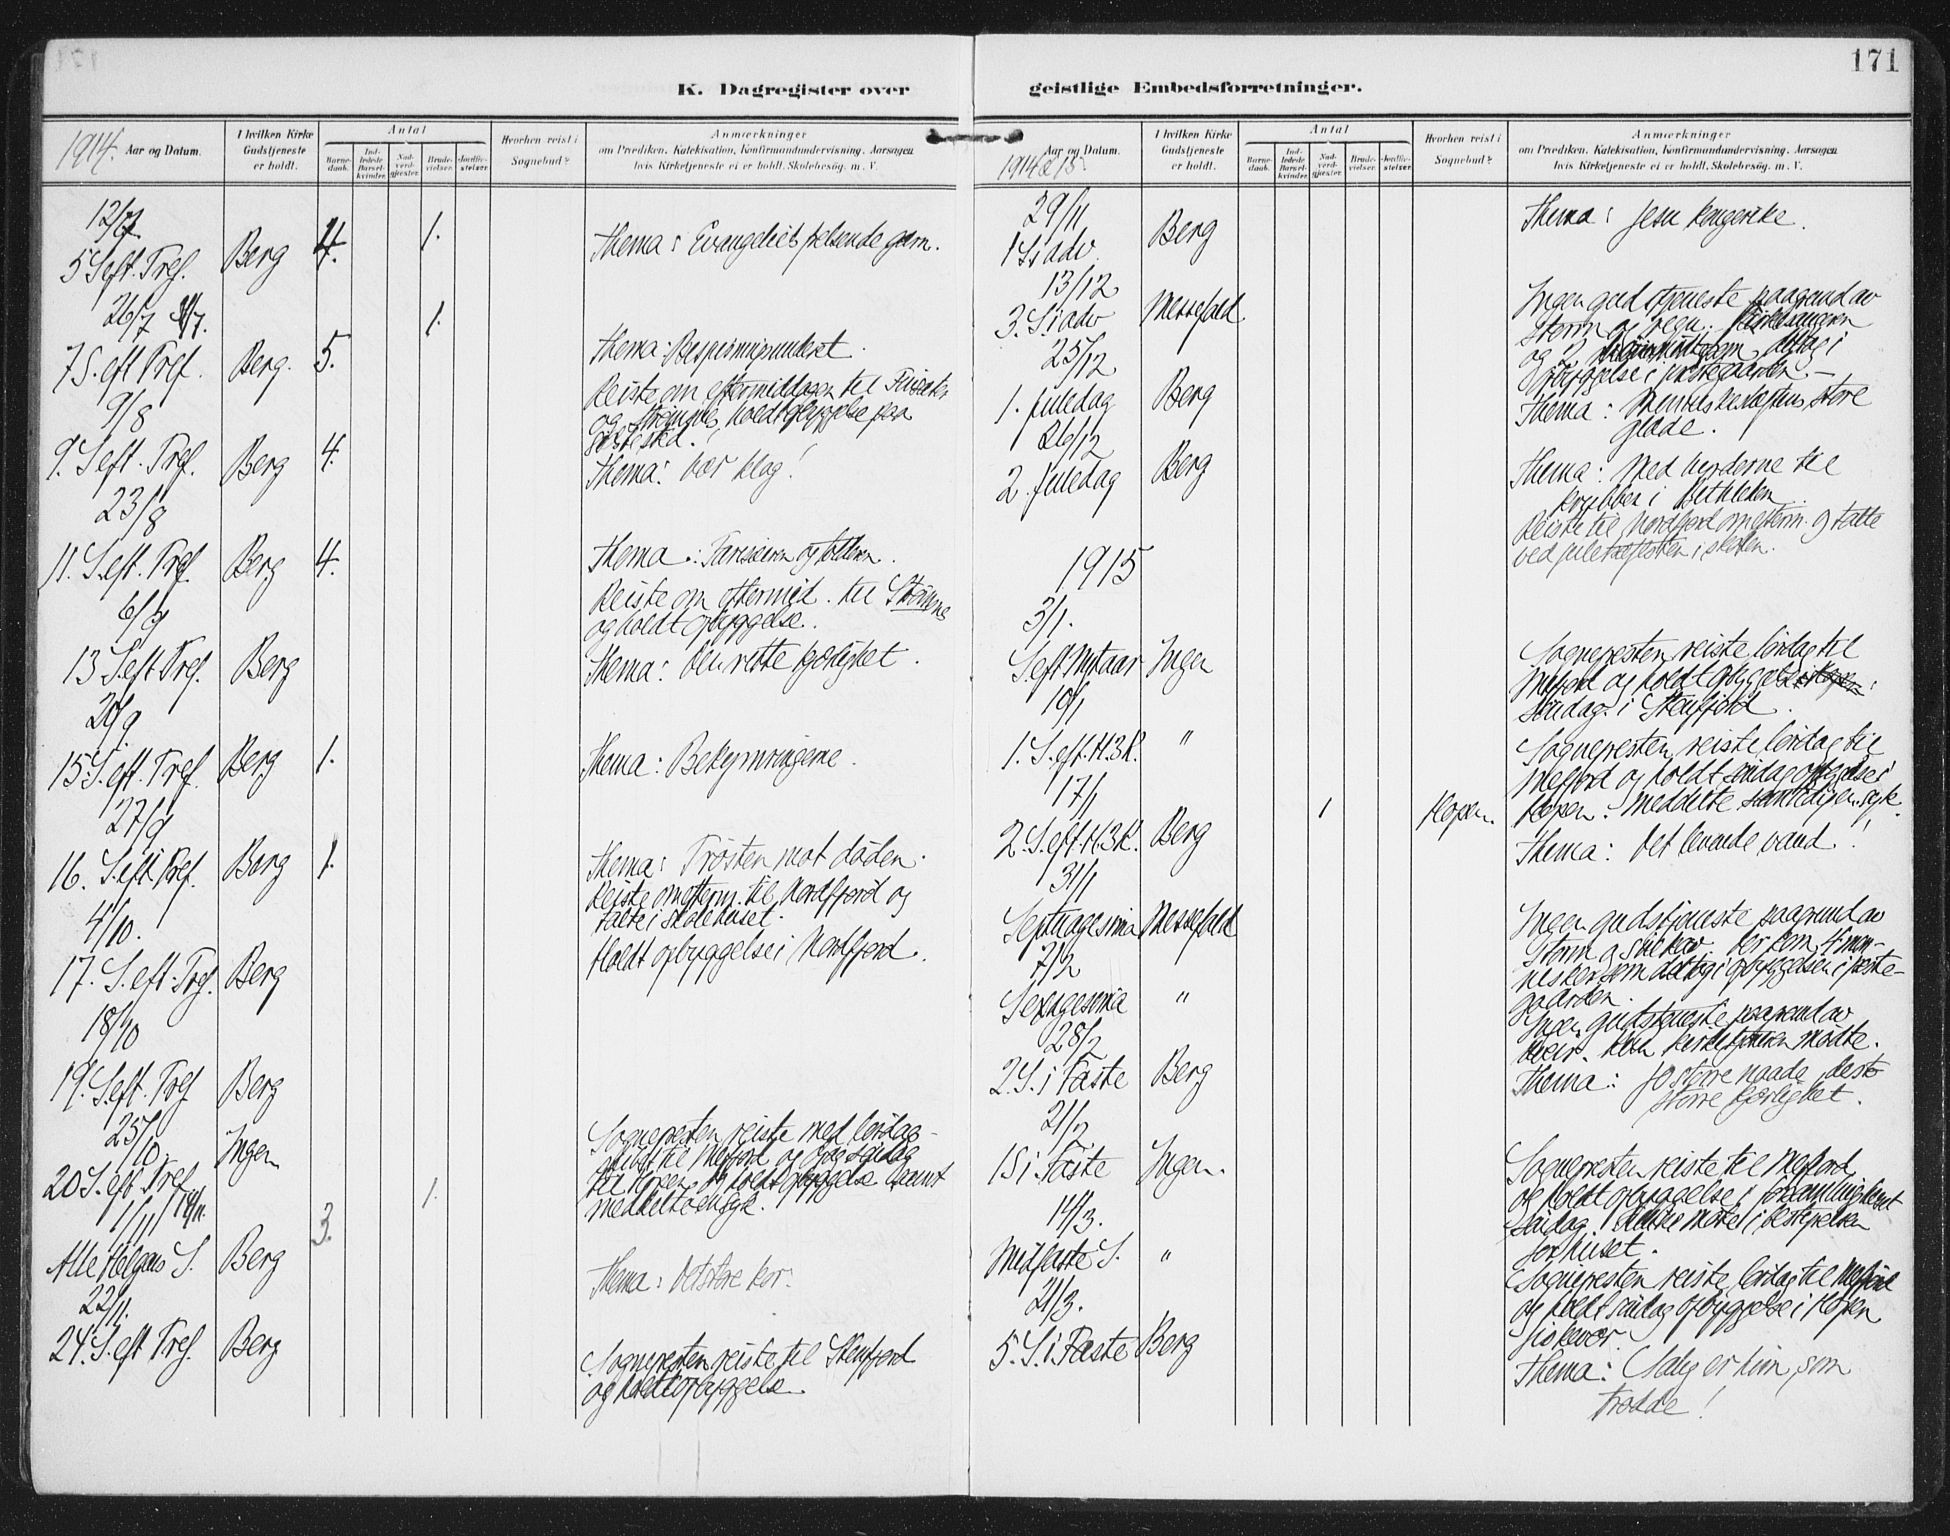 171
K. Dagregister over
1914.
Aar og Datum.
I hvilken Kirke Gudstjeneste er holdt.
Antal
Barnedaab.
Indledede Barselkvinder.
Nadverdgjester.
Brudevielser.
Jordfæstelser.
Hvorhen reist i Sognebud?
Anmærkninger
om Prædiken, Katekisation, Konfirmandundervisning. Aarsagen
hvis Kirketjeneste ei er holdt. Skolebesøg. m. V.
12/7
5 S. eft. Tref. Berg 4. 1. Thema: Evangeliets garn.
26/7
7 S. eft Tref. Berg. 5. 1. Thema:
Reiste om eftermiddagen til
og holdt opbyggelse paa
9/8
9. S eft. Tref. Berg 4. Thema: Vær klog!
23/8
11. S. eft. Tref. Berg 4. Thema: Farisæeren og tolderen.
Reiste om eftermid. til
og holdt opbyggelse.
6/9
13 S. eft Tref. Berg Thema: Den rette kjærlighet.
20/9
15 S. eft. Tref. Berg 1. Thema: Bekymringerne.
27/9
16. S. eft. Tref. Berg 1. Thema: Trøsten mot døden.
Reiste om efterm. til Nordfjord og
talte i skolehuset.
4/10.
17. S. eft. Tref. Berg Holdt opbyggelse i Nordfjord.
18/10
19. S. eft. Tref Berg
25/10
20 S. eft. Tref Ingen Sognepresten reiste med lørdags-
til Mefjord og
til Hopen og holdt opbyggelse samt
1/11 14/11. 1.
Alle Helgens S. Berg 3. Thema: Det store kor.
22/11.
24. S. eft Tref. Berg Sognepresten reiste til Stenfjord
og holdt opbyggelse.
171
geistlige Embedsforretninger.
1914 & 15.
Aar og Datum.
I hvilken Kirke Gudstjeneste er holdt.
Antal
Barnedaab.
Indledede Barselkvinder.
Nadverdgjester.
Brudevielser.
Jordfæstelser.
Hvorhen reist i Sognebud?
Anmærkninger
om Prædiken, Katekisation, Konfirmandundervisning. Aarsagen
hvis Kirketjeneste ei er holdt. Skolebesøg. m. V.
29/11
1 S i adv. Berg Thema: Jesu kongerike.
13/12
3. S i adv Messefald. Ingen gudstjeneste paagrund av
storm og regn. Kirkesangeren
og 2 deltog i
opbyggelse i prestegaarden.
25/12
1. juledag Berg Thema: Menneskeslegtens store
glæde.
26/12
2. juledag Berg Thema: Med hyrderne til
krybben i Bethlehem
Reiste til Nordfjord om efterm. og talte
ved juletræfesten i skolen.
1915
3/1.
S. eft Nytaar Ingen Sognepresten reiste lørdag til
Mefjord og holdt opbyggelse
søndag i Stenfjord.
10/1
1. S. eft. H3K. " Sognepresten reiste lørdag til
Mefjord og holdt søndag opbyggelse i
Hopen. Meddelte samtidigen syk.
1 Hopen.
17/1
2. S. eft. H3K. Berg Thema: Det levende vand!
31/1
Septuagesima Messefald Ingen gudstjeneste paagrund av
Storm og Der kom 4 men-
nesker som deltog i opbyggelsen i preste-
gaarden.
7/2
Sexagesima " Ingen gudstjeneste paagrund av
veir. Kun kirketjeneren mødte.
28/2
2. S. i Faste Berg Thema: Jo større naade, desto
større kjærlighet.
21/2
1 S i Faste Ingen. Sognepresten reiste til Mefjord
og holdt opbyggelse i forsamlingshuset
søndag. møtet i bestyrelsen
for huset.
14/3.
Midfaste S. " Sognepresten reiste lørdag til Mefjord
og holdt søndag opbyggelse i Hopen
fiskevær.
21/3.
5. S. i Faste Berg Thema: Salig er hun, som
trodde!